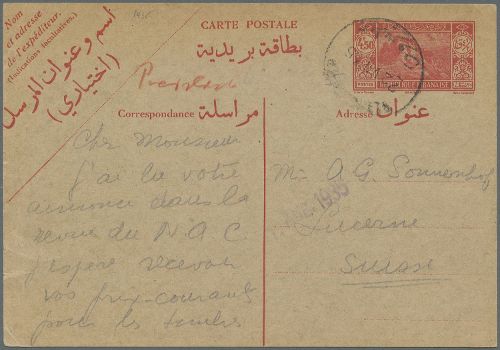 Nom
et adresse
de l'expéditeur.
(Indications facultatives.)
اسم وعنوان المرسل
(اختياري)
CARTE POSTALE
بطاقة بريدية
Correspondance مراسلة
Adresse عنوان
Cher Monsieur
j'ai lu votre
annonce dans la
revue du N A C
j'espère recevoir
vos prix-courants
pour les timbres
Mr A G. Sonnenhof
Lucerne
Suisse
1935